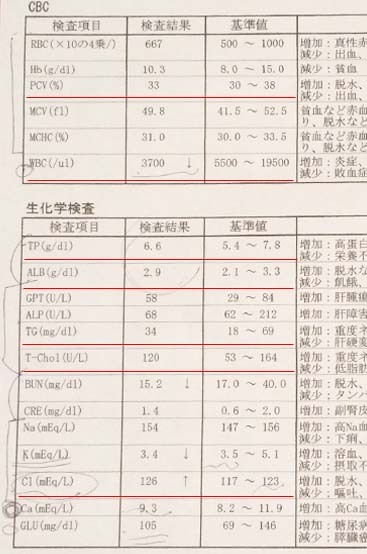 CBC
検査項目 検査結果 基準値
RBC(×10の4乗/) 667 500 ～ 1000 増加：真性赤
減少：出血、
Hb(g/dl) 10.3 8.0 ～ 15.0 減少：貧血
PCV(%) 33 30 ～ 38 増加：脱水、
減少：出血、
MCV(fl) 49.8 41.5 ～ 52.5 貧血など赤血
り、脱水など
MCHC(%) 31.0 30.0 ～ 33.5 貧血など赤血
り、脱水など
WBC(/ul) 3700 ↓ 5500 ～ 19500 増加：炎症、
減少：敗血症
生化学検査
検査項目 検査結果 基準値
TP(g/dl) 6.6 5.4 ～ 7.8 増加：高蛋白
減少：栄養不
ALB(g/dl) 2.9 2.1 ～ 3.3 増加：脱水な
減少：飢餓、
GPT(U/L) 58 29 ～ 84 増加：肝腫瘍
ALP(U/L) 68 62 ～ 212 増加：肝障害
TG(mg/dl) 34 18 ～ 69 増加：重度ネ
減少：肝硬変
T-Chol(U/L) 120 53 ～ 164 増加：重度ネ
減少：低脂肪
BUN(mg/dl) 15.2 ↓ 17.0 ～ 40.0 増加：脱水、
減少：タンパ
CRE(mg/dl) 1.4 0.6 ～ 2.0 増加：副腎皮
Na(mEq/L) 154 147 ～ 156 増加：高Na血
減少：下痢、
K(mEq/L) 3.4 ↓ 3.5 ～ 5.1 増加：溶血、
減少：摂取不
Cl(mEq/L) 126 ↑ 117 ～ 123 増加：脱水、
減少：嘔吐、
Ca(mEq/L) 9.3 8.2 ～ 11.9 増加：高Ca血
GLU(mg/dl) 105 69 ～ 146 増加：糖尿病
減少：膵臓癌